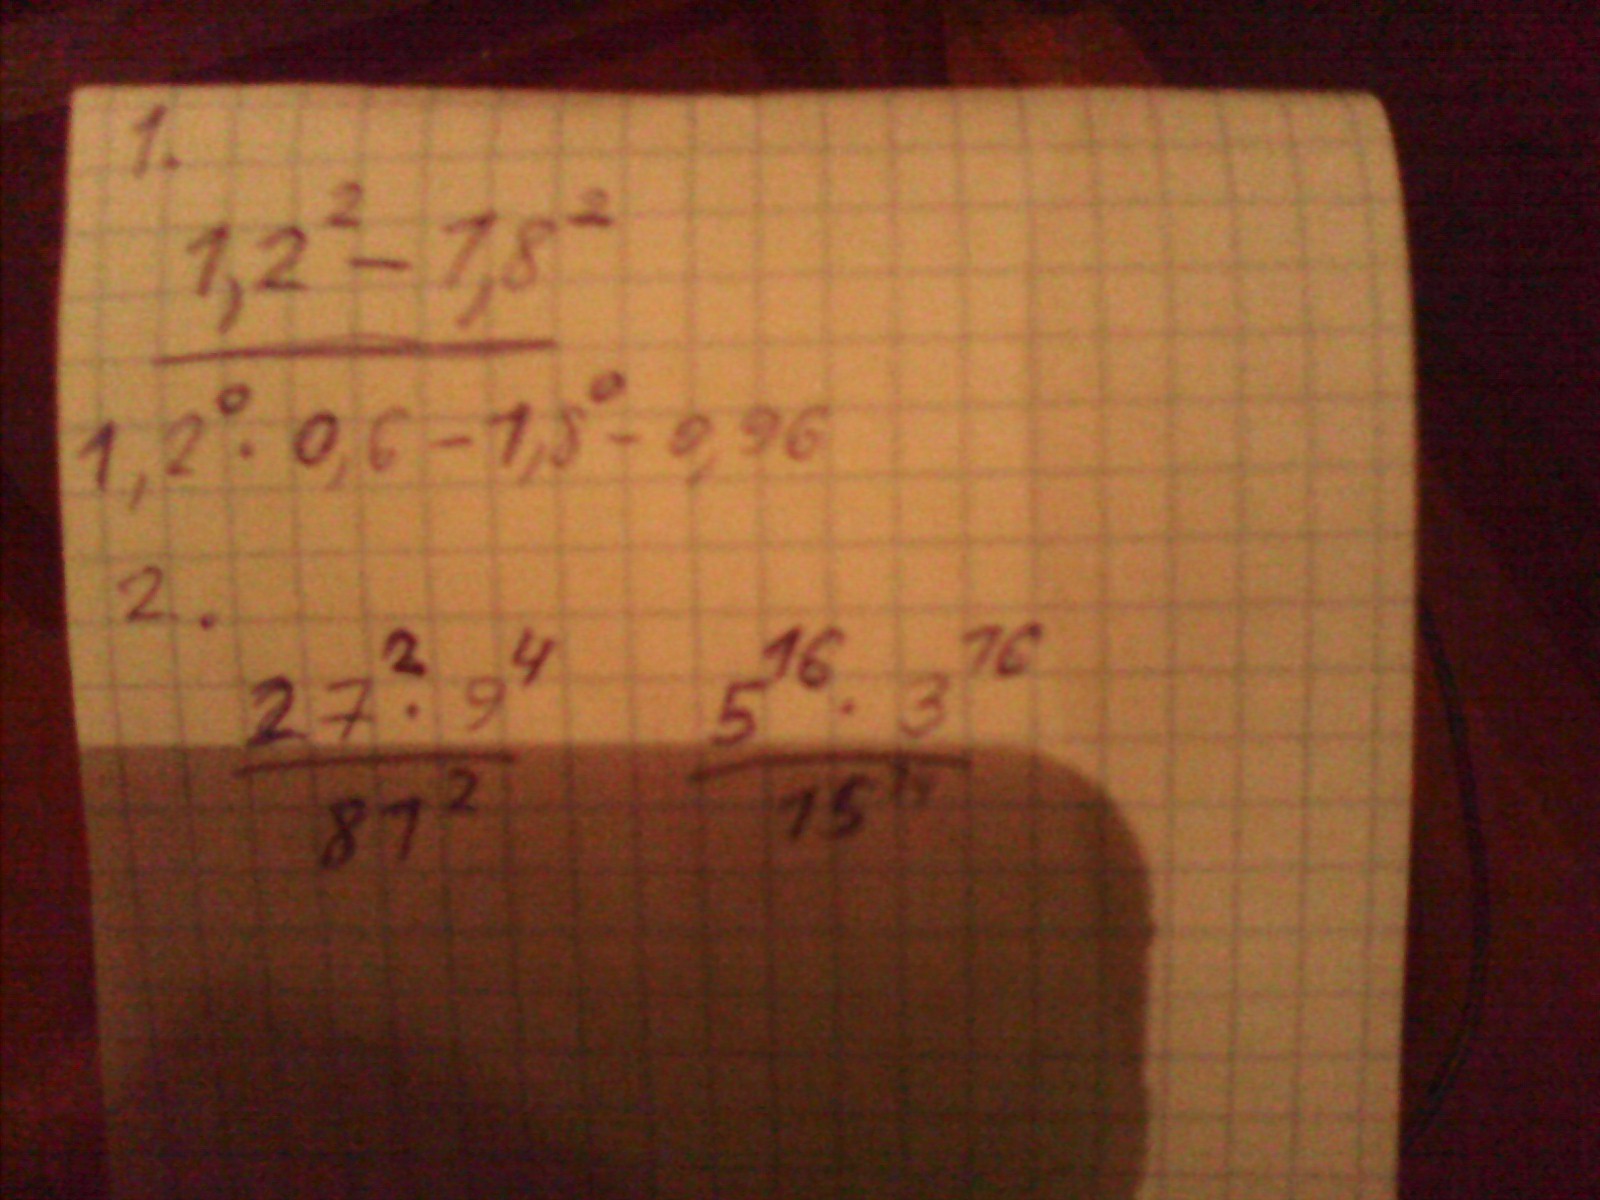 1.
1,2² - 1,8²
1,2⁰ · 0,6 - 1,8⁰ - 0,96
2.
27² · 9⁴ 5¹⁶ · 3¹⁶
81² 15